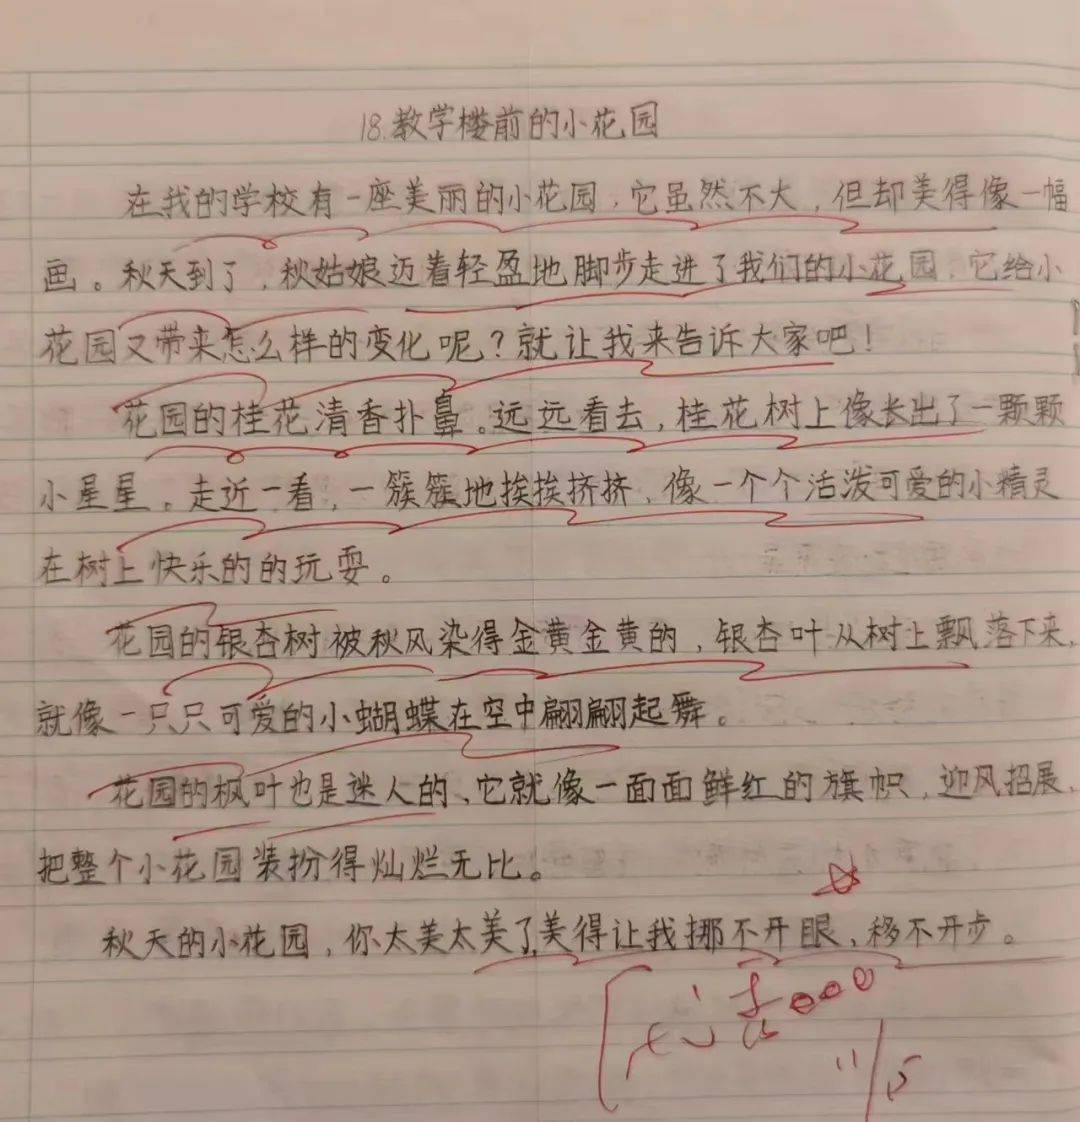 18.教学楼前的小花园
在我的学校有一座美丽的小花园,它虽然不大,但却美得像一幅
画。秋天到了,秋姑娘迈着轻盈地脚步走进了我们的小花园,它给小
花园又带来怎么样的变化呢?就让我来告诉大家吧!
花园的桂花清香扑鼻。远远看去,桂花树上像长出了一颗颗
小星星。走近一看,一簇簇地挨挨挤挤,像一个个活泼可爱的小精灵
在树上快乐的的玩耍。
花园的银杏树被秋风染得金黄金黄的,银杏叶从树上飘落下来,
就像一只只可爱的小蝴蝶在空中翩翩起舞。
花园的枫叶也是迷人的、它就像一面面鲜红的旗帜,迎风招展,
把整个小花园装扮得灿烂无比。
秋天的小花园,你太美太美了,美得让我挪不开眼、移不开步。
11/5